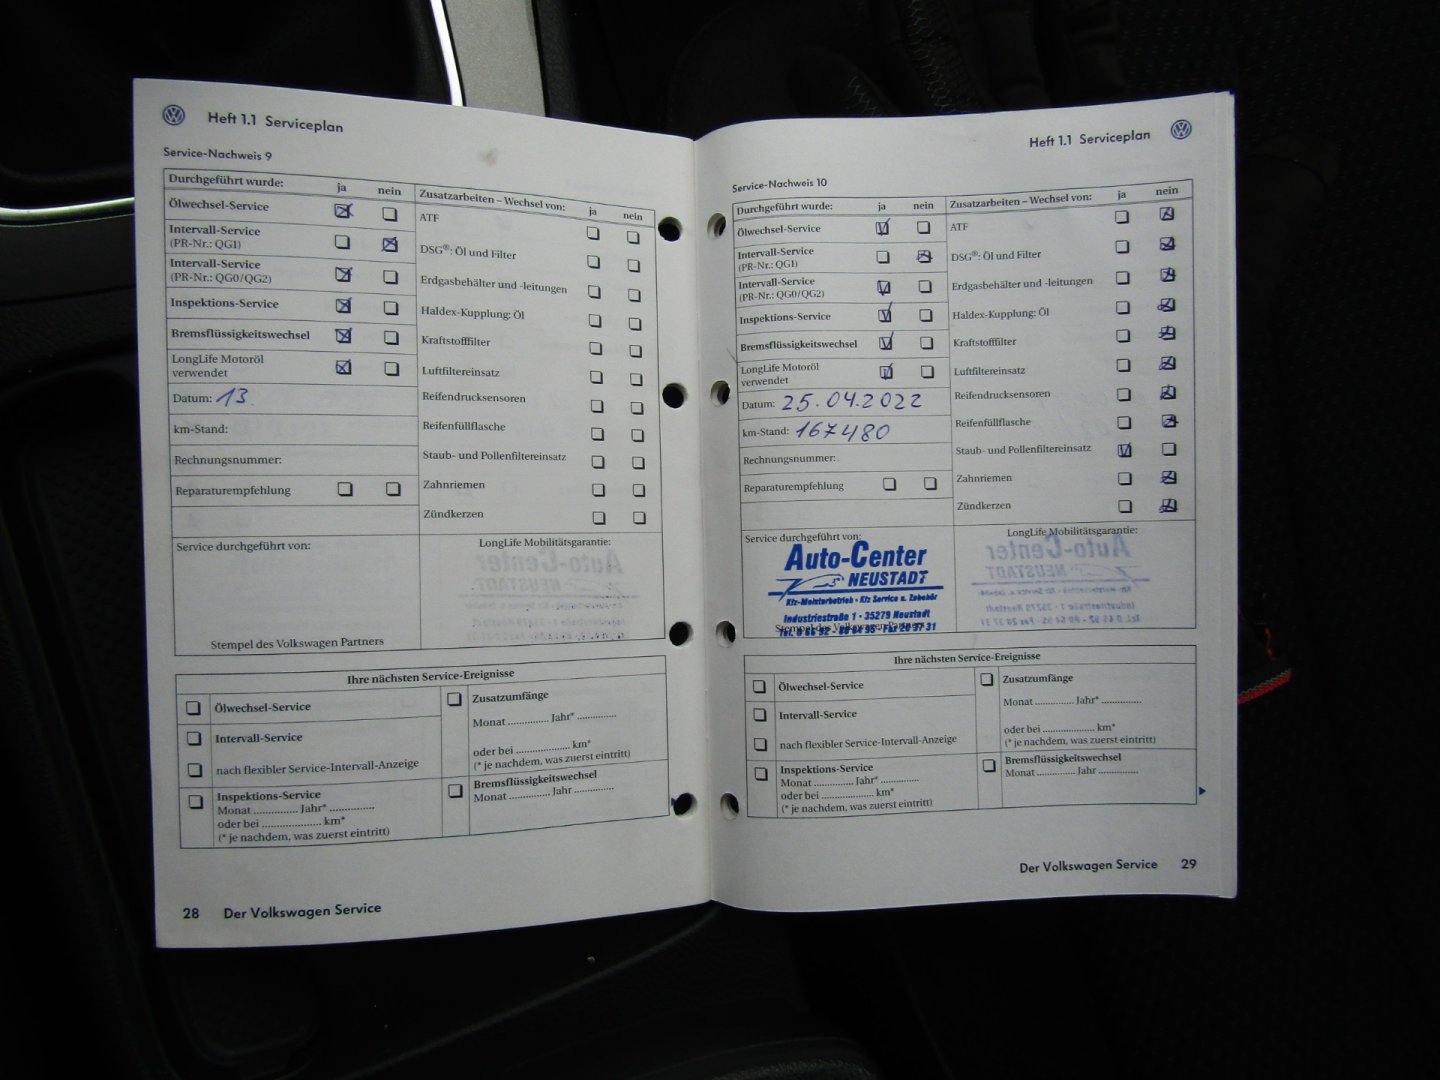 Heft 1.1 Serviceplan
Service-Nachweis 9
Durchgeführt wurde: ja nein
Ölwechsel-Service
Intervall-Service
(PR-Nr.: QG1)
Intervall-Service
(PR-Nr.: QG0/QG2)
Inspektions-Service
Bremsflüssigkeitswechsel
LongLife Motoröl
verwendet
Datum: 13.
km-Stand:
Rechnungsnummer:
Reparaturempfehlung
Zusatzarbeiten – Wechsel von: ja nein
ATF
DSG®: Öl und Filter
Erdgasbehälter und -leitungen
Haldex-Kupplung: Öl
Kraftstofffilter
Luftfiltereinsatz
Reifendrucksensoren
Reifenfüllflasche
Staub- und Pollenfiltereinsatz
Zahnriemen
Zündkerzen
Service durchgeführt von:
Stempel des Volkswagen Partners
LongLife Mobilitätsgarantie:
Ihre nächsten Service-Ereignisse
Ölwechsel-Service
Intervall-Service
nach flexibler Service-Intervall-Anzeige
Inspektions-Service
Monat .............. Jahr* ..............
oder bei .................... km*
(* je nachdem, was zuerst eintritt)
Zusatzumfänge
Monat .............. Jahr* .............
oder bei .................. km*
(* je nachdem, was zuerst eintritt)
Bremsflüssigkeitswechsel
Monat ............. Jahr .............
28 Der Volkswagen Service
Heft 1.1 Serviceplan
Service-Nachweis 10
Durchgeführt wurde: ja nein
Ölwechsel-Service
Intervall-Service
(PR-Nr.: QG1)
Intervall-Service
(PR-Nr.: QG0/QG2)
Inspektions-Service
Bremsflüssigkeitswechsel
LongLife Motoröl
verwendet
Datum: 25.04.2022
km-Stand: 167480
Rechnungsnummer:
Reparaturempfehlung
Zusatzarbeiten – Wechsel von: ja nein
ATF
DSG®: Öl und Filter
Erdgasbehälter und -leitungen
Haldex-Kupplung: Öl
Kraftstofffilter
Luftfiltereinsatz
Reifendrucksensoren
Reifenfüllflasche
Staub- und Pollenfiltereinsatz
Zahnriemen
Zündkerzen
Service durchgeführt von:
Auto-Center
NEUSTADT
Kfz-Meisterbetrieb · Kfz Service u. Zubehör
Industriestraße 1 · 35279 Neustadt
Stempel des Volkswagen Partners
Tel. 0 66 92 - 80 64 95 · Fax 20 37 31
LongLife Mobilitätsgarantie:
Ihre nächsten Service-Ereignisse
Ölwechsel-Service
Intervall-Service
nach flexibler Service-Intervall-Anzeige
Inspektions-Service
Monat ............. Jahr* .............
oder bei .................. km*
(* je nachdem, was zuerst eintritt)
Zusatzumfänge
Monat ............. Jahr* .............
oder bei .................. km*
(* je nachdem, was zuerst eintritt)
Bremsflüssigkeitswechsel
Monat ............. Jahr .............
Der Volkswagen Service 29